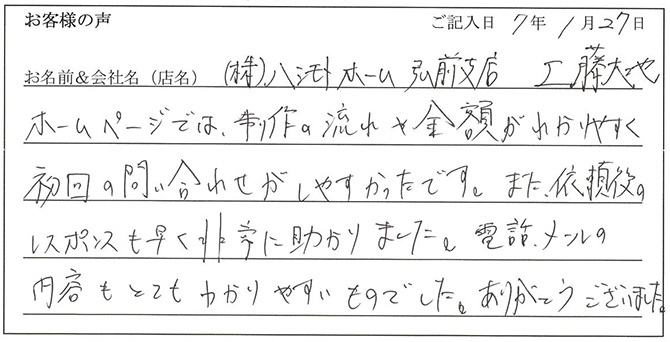 お客様の声 ご記入日 7年 1月27日
お名前&会社名(店名) (株)ハシモトホーム 弘前支店 工藤大地
ホームページでは、制作の流れや金額がわかりやすく
初回の問い合わせがしやすかったです。また、依頼後の
レスポンスも早く非常に助かりました。電話、メールの
内容もとてもわかりやすいものでした。ありがとうございました。